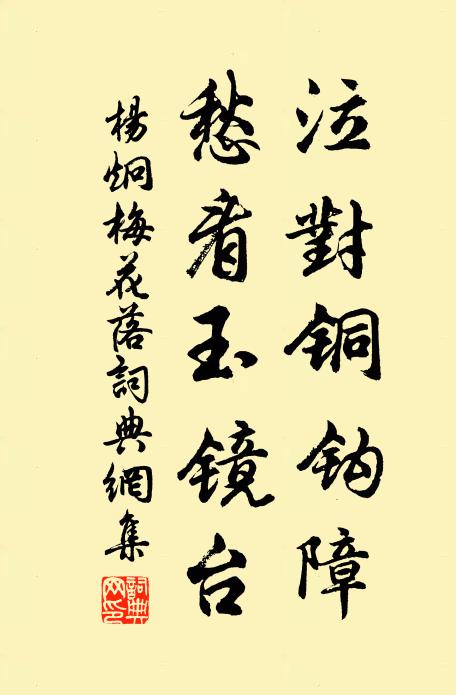 泣對铜钩障
愁看玉镜台
楊炯梅花落詞典網集
詞典网印